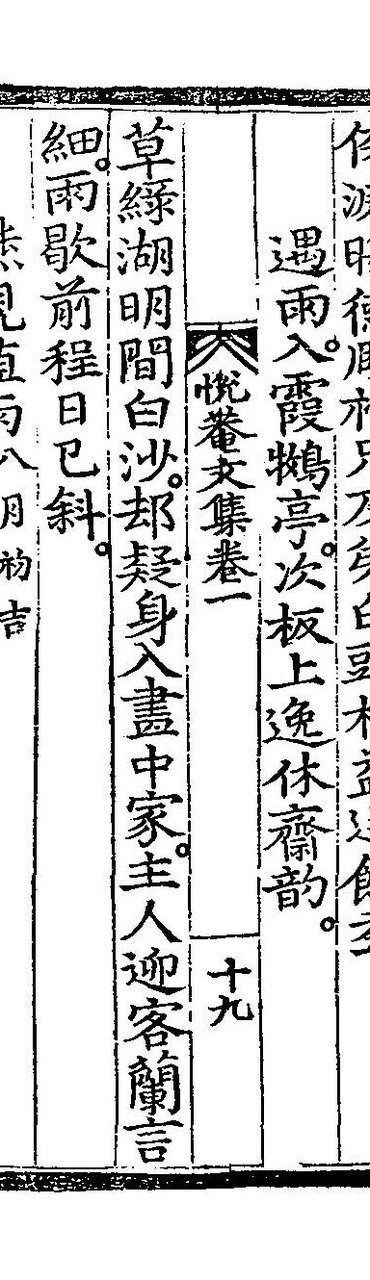 遇雨。入霞鶩亭。次板上逸休齋韵。
悅菴文集卷一
十九
草綠湖明間白沙。却疑身入畫中家。主人迎客蘭言
細。雨歇前程日已斜。
八月初吉